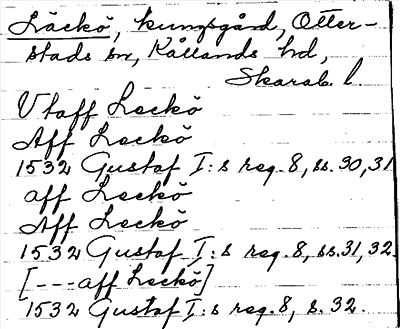 Läckö, kungsgård, Otter-
stads sn, Kållands hd,
Skarab. l.
Vtaff Leckö
Aff Leckö
1532 Gustaf I:s reg. 8, ss. 30, 31
aff Leckö
Aff Leckö
1532 Gustaf I:s reg. 8, ss. 31, 32.
[---aff Leckö]
1532 Gustaf I:s reg. 8, s. 32.